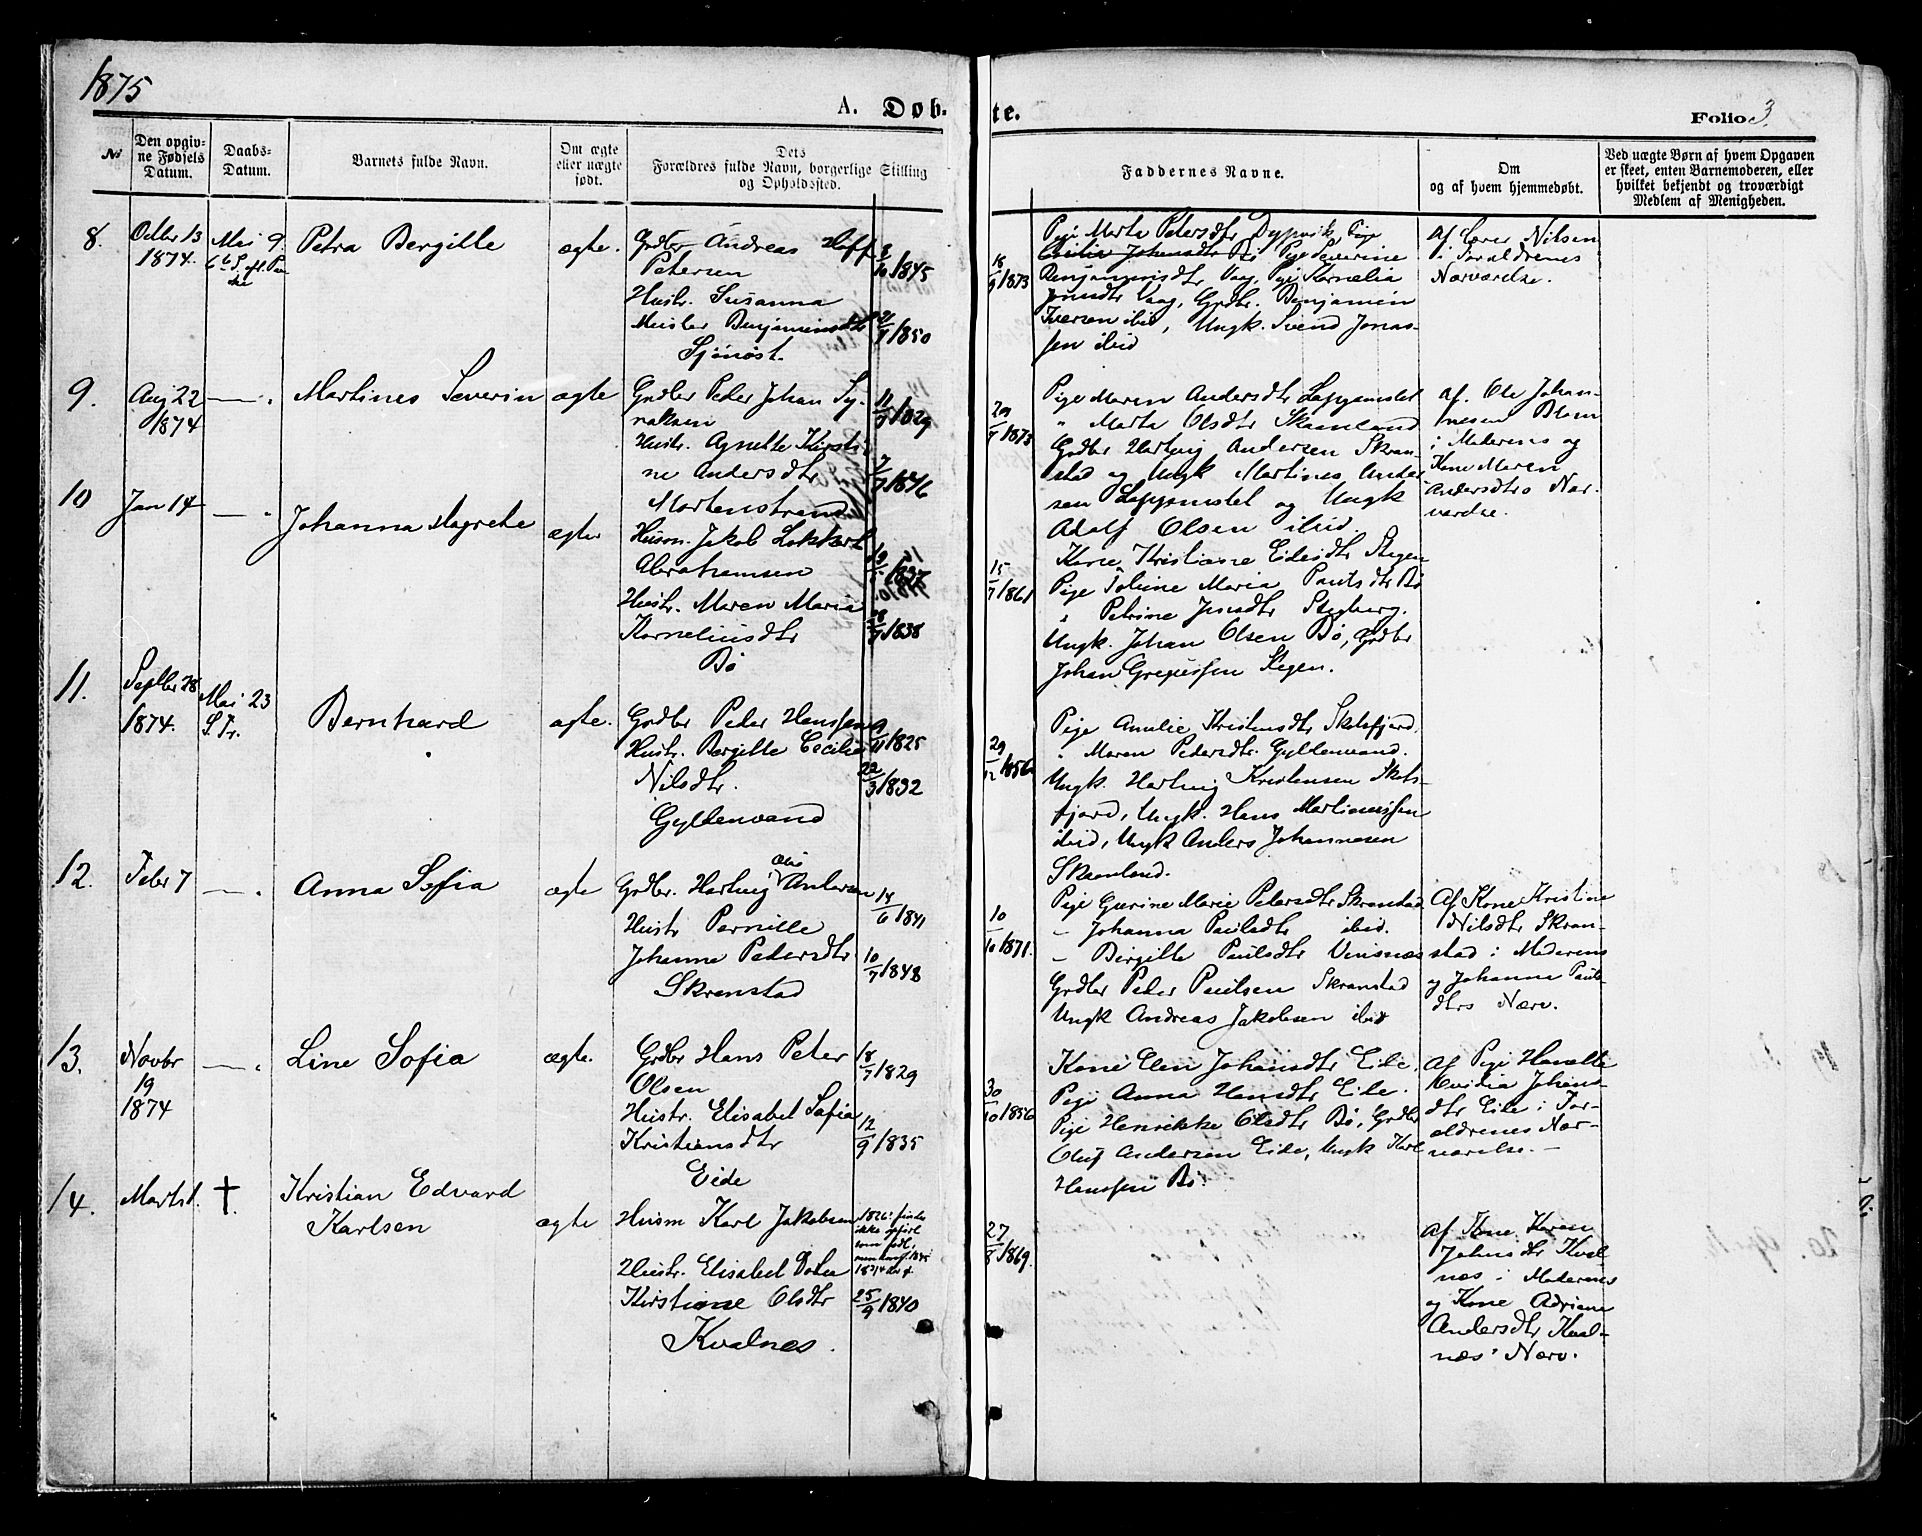 1875
A. Døb-
te.
Folio 3
№
Den opgiv-
ne Fødsels
Datum.
Daabs-
Datum.
Barnets fulde Navn.
Om ægte
eller uægte
født.
Dets
Forældres fulde Navn, borgerlige Stilling
og Opholdssted.
Faddernes Navne.
Om
og af hvem hjemmedøbt.
Ved uægte Børn af hvem Opgaven
er skeet, enten Barnemoderen, eller
hvilket bekjendt og troværdigt
Medlem af Menigheden.
8.
Octbr 13
1874.
Mai 9.
Petra Bergitte
ægte.
Grdbr Andreas Hoff
Petersen
Hustr. Susanna
Benjaminsdtr
1845
1850
18/9 1873
Pige Marta Petersdtr Dypvik, Pige
Johansdtr Bø Pige Severine
Benjaminsdtr Vaag, Pige Kornelia
Vaag, Grdbr. Benjamin
Iversen ibid, Ungk. Svend Jonas-
sen ibid
Af Nilsen
i Foraldrenes
Nærværelse.
9.
Aug 22
1874
— .
Martines Severin
ægte
Grdbr Peder Johan Sy-
raksen
Hustr. Agnette Kirsti-
ne Andersdtr
Mortenstrand
1829
1873
Pige Maren Andersdtr
" Marta Olsdtr Skamland
Grdbr Hartvig Andersen Skran-
stad og Ungk Martines Ander
sen og Ungk
Adolf Olsen ibid.
af. Ole Johan-
nesen
i Moderens og
Kone Maren
Andersdtrs Nær-
værelse.
10
Jan 14
— .
Johanna Magrete
ægte
Husm. Jakob Lokkert
Abrahamsen
Hustr. Maren Maria
Korneliusdtr
Bø
1838
15/7 1861
Kone Kristiane Eidisdtr Stegen
Pige Maria Paulsdtr Bø
" Petrine Jensdtr Stegberg.
Ungk. Johan Olsen Bø, Grdbr
Johan Gregussen Stegen.
11.
Septbr 28
1874.
Mai 23
Bernhard
ægte.
Grdbr Peder Hanssen
Hustr. Bergitte Cecilia
Nilsdtr.
Gyldenvand
9/11 1825
22/3 1832
29/12 1856
Pige Amalie Kristensdtr Skotsfjord.
" Maren Pedersdtr. Gyldenvand.
Ungk. Hartvig Kristensen Skots-
fjord, Ungk. Hans Martinussen
ibid, Ungk Anders Johannesen
Skamland.
12.
Febr 7
— .
Anna Sofia
ægte
Grdbr. Hartvig Andersen
Hustr Pernille
Johanna Pedersdtr.
Skranstad
14/6 1841
10/7 1848
10/10 1871.
Pige Gurine Marie Petersdtr Skranstad
— Johanna Paulsdtr ibid.
— Bergitte Paulsdtr Vinsnæs
Grdbr Peder Paulsen Skranstad
Ungk Andreas Jakobsen ibid
Af Kone Kristine
Nilsdtr Skran-
stad i Moderens
og Johanna Pauls-
dtrs Nærv.
13.
Novbr
19
1874
— .
Line Sofia
ægte.
Grdbr Hans Peter
Olsen
Hustr. Elisabet Sofia
Kristiansdtr
Eide
18/7 1829
12/9 1835
30/10 1856
Kone Elen Johansdtr Eide.
Pige Anna Hansdtr Eide.
Pige Henrikke Olsdtr Bø, Grdbr
Oluf Andersen Eide, Ungk Karl
Hanssen Bø.
Af Pige Hanette
Johans-
dtr Eide i For-
ældrenes Nær-
værelse. —
14.
Marts 1.
†.
Kristian Edvard
Karlsen
ægte
Husm Karl Jakobsen
Hustr. Elisabet
Kirstiane Olsdtr
Kvalnes.
1826: findes
ikke opført
som født,
25/9 1840
27/8 1869.
Af Kone Karen
Johnsdtr Kval-
næs i Moderens
og Kone Adriane
Andersdtr Kval-
næs' Nærv.